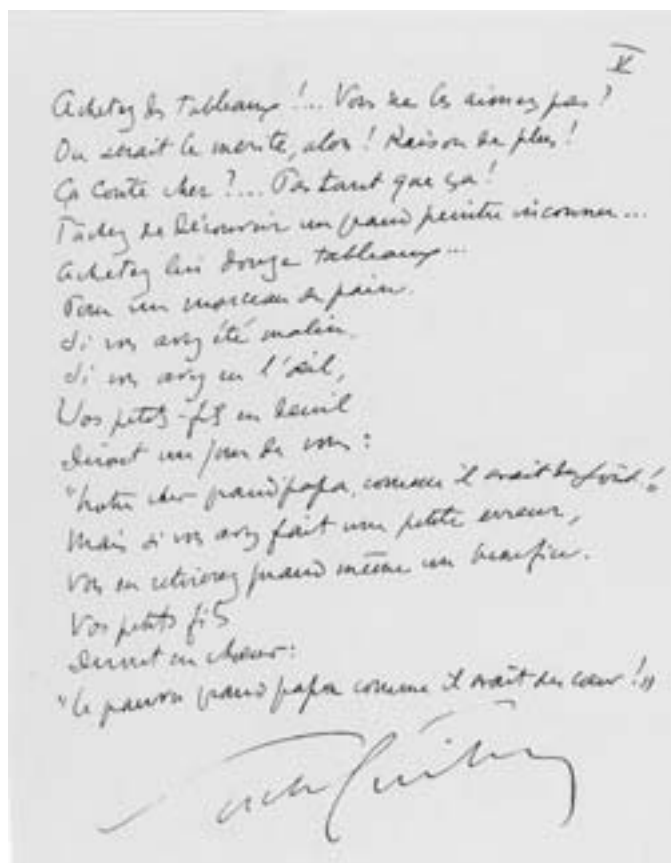 V
Achetez des tableaux !... Vous ne les aimez pas ?
Où serait le mérite, alors ! Raison de plus !
Ça coûte cher ?... Pas tant que ça !
Tâchez de découvrir un grand peintre inconnu...
Achetez lui douze tableaux...
Pour un morceau de pain.
Si vous avez été malin,
Si vous avez eu l'œil,
Vos petits-fils en deuil
diront un jour de vous :
"Notre cher grand papa, comme il avait du goût !"
Mais si vous avez fait une petite erreur,
Vous en retirerez quand même un bénéfice.
Vos petits fils
diront en chœur :
"Le pauvre grand papa comme il avait du cœur !"
Sacha Guitry